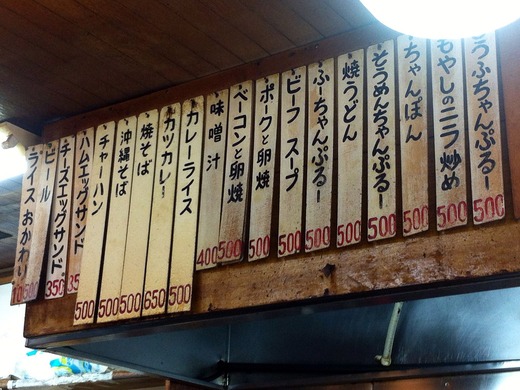 とうふちゃんぷるー 500
もやしのニラ炒め 500
ちゃんぽん 500
そうめんちゃんぷるー 500
焼うどん 500
ふーちゃんぷるー 500
ビーフ スープ 500
ポークと卵焼 500
ベーコンと卵焼 500
味噌汁 400
カレーライス 500
カツカレー 650
焼そば 500
沖縄そば 500
チャーハン 500
ハムエッグサンド 35
チーズエッグサンド 350
ビール
ライス おかわり